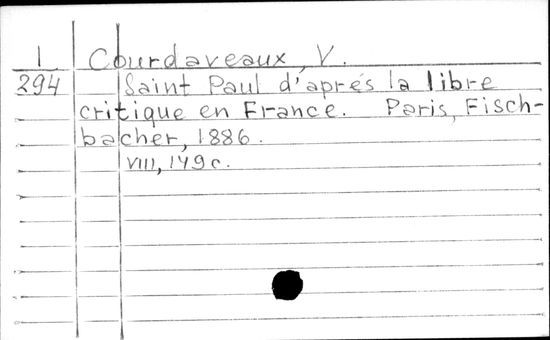 I Courdaveaux, V.
294 Saint Paul d'après la libre
critique en France. Paris, Fisch-
bacher, 1886.
VIII, 149 c.